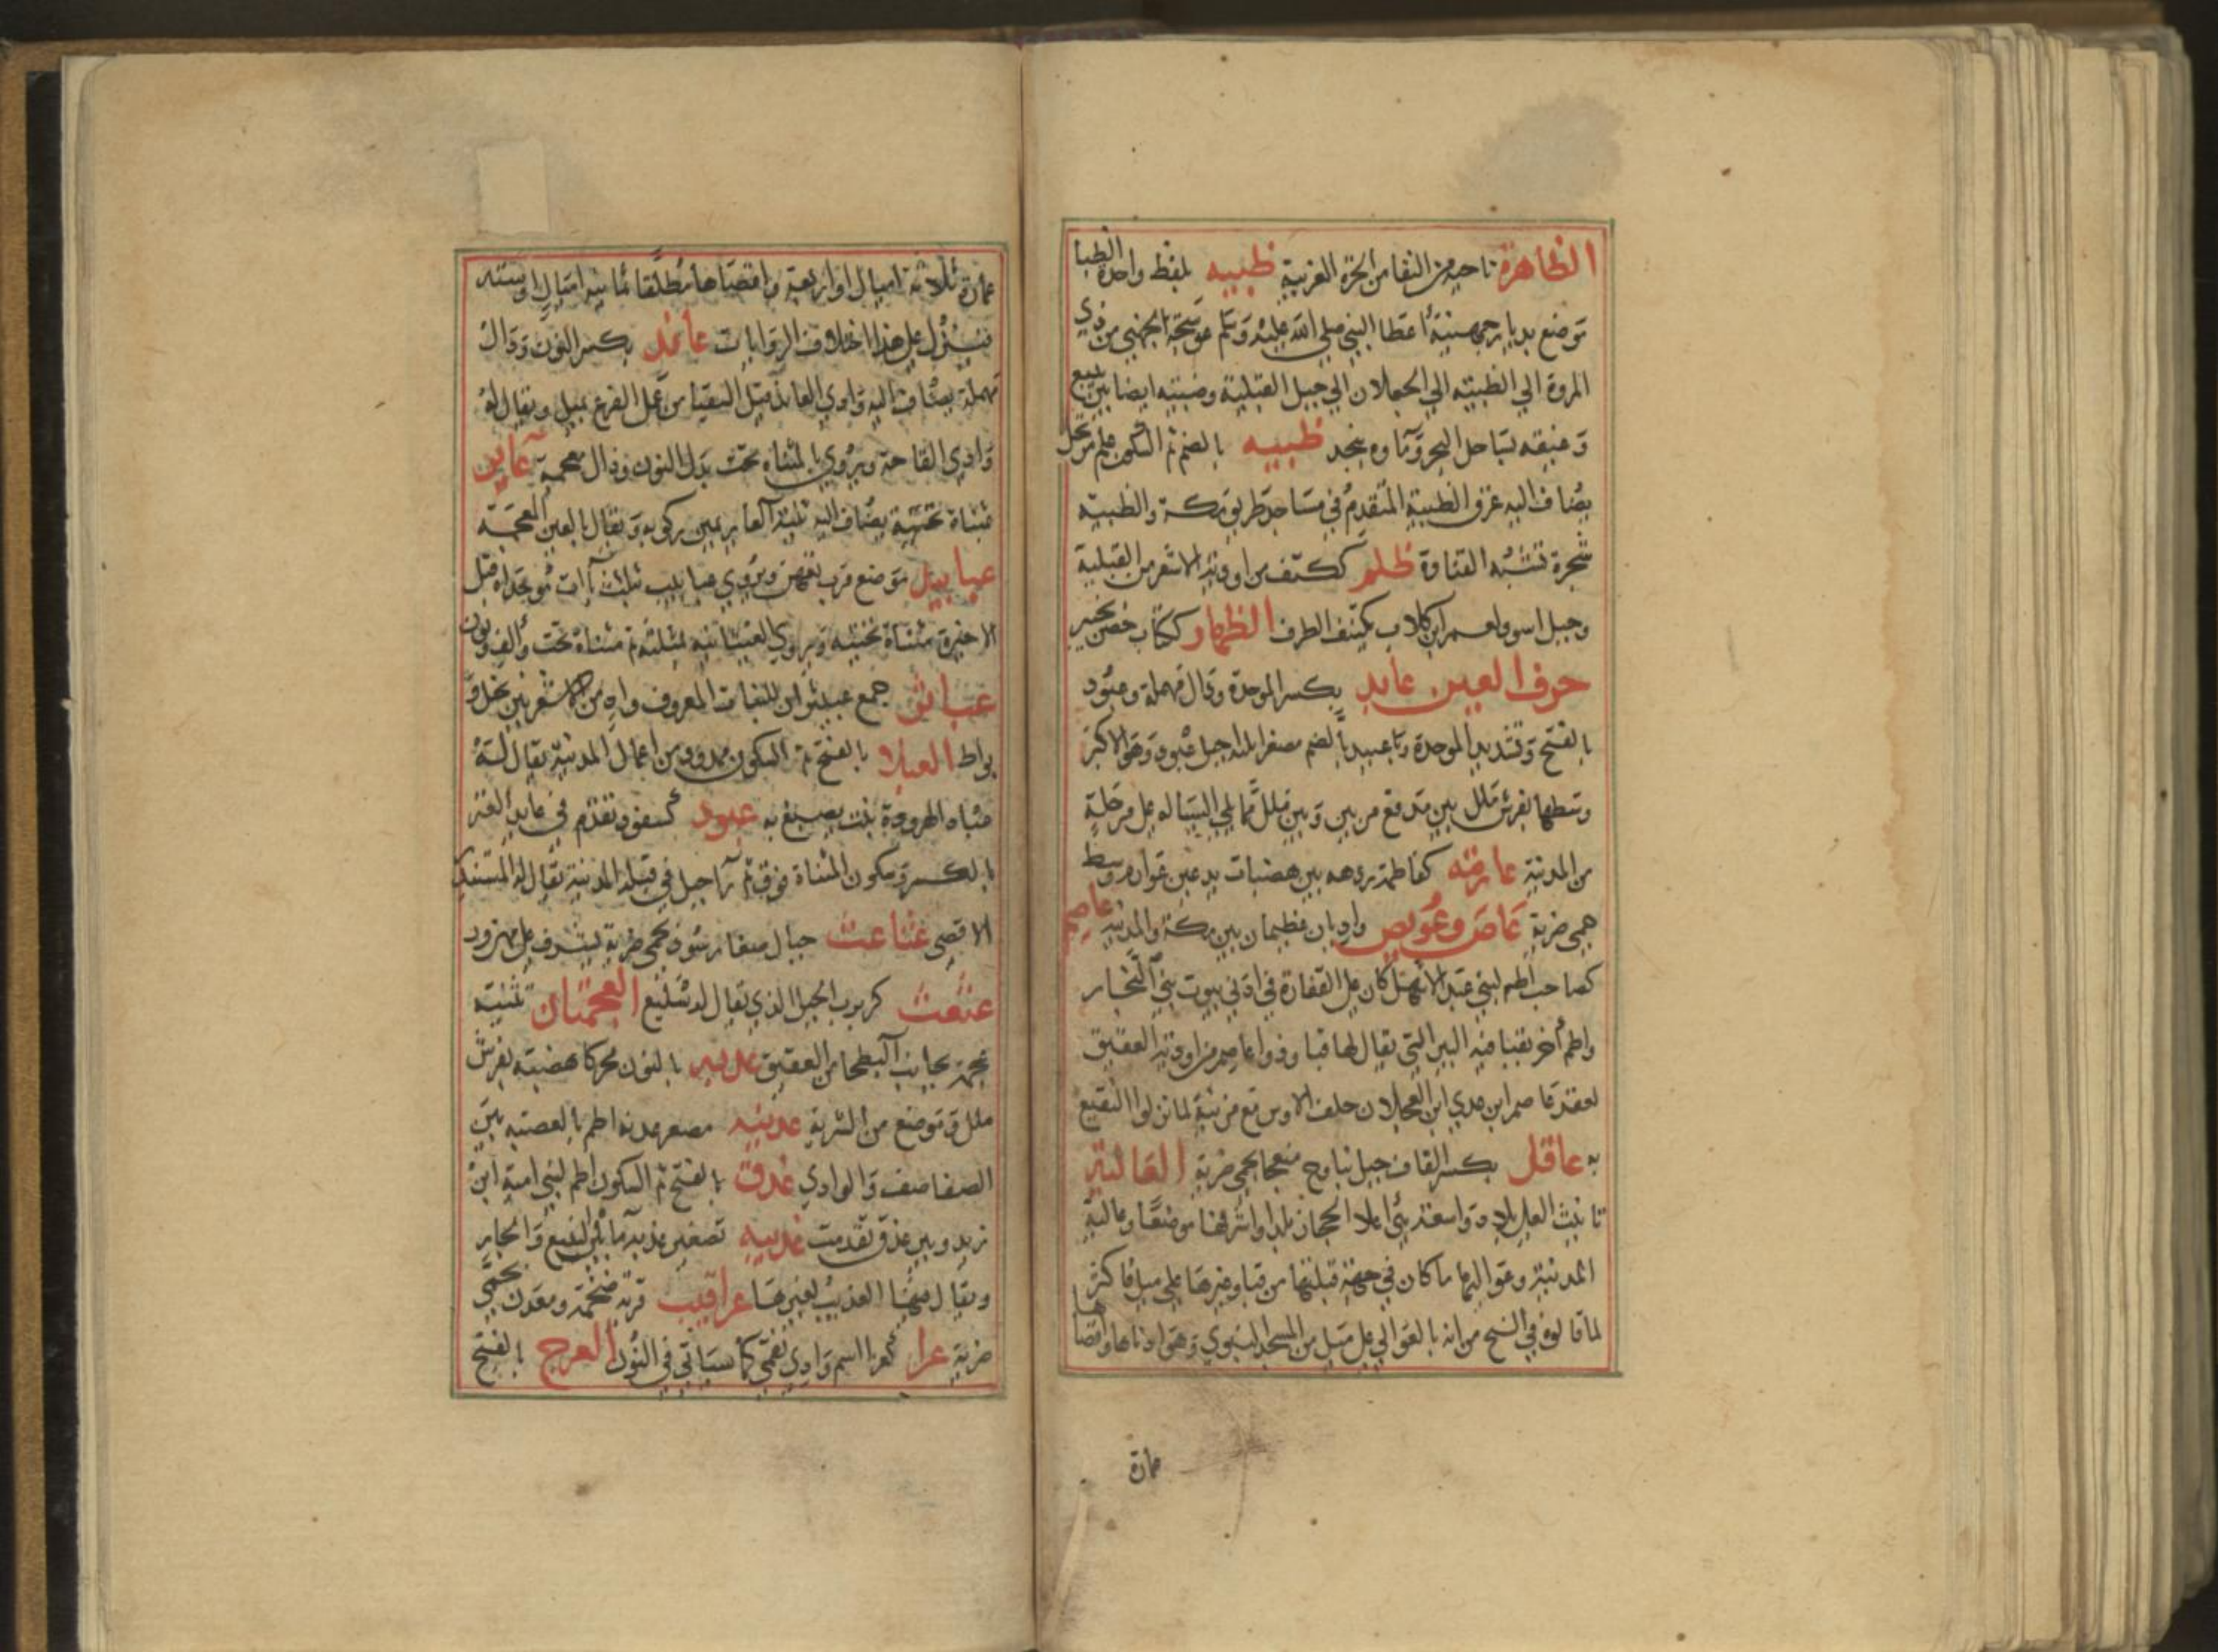 الظاهرة ناحية من النقا من الحرة الغربية ظبيه بلفظ واحدة الظبا
موضع بديار جهينة أعطا النبي صلي الله عليه وسلم عوسجة الجهني من ذي
المروة الي الظبيته الي الجعلات الي جبل القبلية وضبيته ايضا بين ينبع
وغيقه بساحل البحر وماوه بنجد ظبيه بالضم ثم السكون علم مرتجل
يضاف اليه عرق الظبية المتقدم في مساجد طريق مكة والظبية
شجرة تشبه القتادة ظلم ككتف من اودية الاشعر من القبلية
وجبل اسود لعمر ابن كلاب يكتنف الطرف الظهار ككتاب حصن بخيبر
حرف العين عابد بكسر الموحدة ودال مهملة وعبود
بالفتح وتشديد الموحدة وعبيد بالضم مصغر اجبل عبود وهو الاكبر
وسطها بفرش ملل بين مدفع مريين وبين ملل مما يلي السيالة علي مرحلة
من المدينة عارمه كفاطمة ردهه بين هضبات يدعين عوارم وسط
حمي ضرية عاص وعويص واديان عظيمان بين مكة والمدينة عاصم
كصاحب اطم لبني عبد الاشهل كان علي الفقارة في ادني بيوت بني النجار
واطم أخر بقبا فيه البير التي يقال لها قبا وذوا عاصم من اودية العقيق
لعقد عاصم ابن عدي ابن العجلان حلف الاوس مع مزينة لما نزلوا النقيع
به عاقل بكسر القاف جبل يناوح منعجا بحمي ضرية العالية
تانيث العالي بلاد واسعة
المدينة وعواليها ما كان في جهة قبلتها من قبا وغيرها علي ميل فاكثر
لما قالوه في السنح من انه بالعوالي علي ميل من المسجد النبوي وهو ادناها واقصاها
عمارة
عمارة ثلاثة اميال او اربعة واقصاها مطلقا ثمانية اميال او ستة
فينزل علي هذا اختلاف الروايات عاند بكسر النون ودال
مهملة يضاف اليه وادي العاند قبل السقيا من عمل الفرع بميل ويقال له
وادي القاحة ويروي بالمثناه تحت بدل النون وذال معجمة عاير
مثناة تحتية يضاف اليه ثنية العاير يمين ركوبه ويقال بالغين المعجمة
عبابيد موضع قرب تعهن ويروي عبابيب بثلاث بآات موحدة قبل
الاخيرة مثناة تحتيه ويروي العثيانية بمثلثة ثم مثناة تحت والف ونون
عباثر جمع عبيثران للنبات المعروف واد من الاشعر بين نخل و
بواط العبلا بالفتح ثم السكون ممدود من اعمال المدينة يقال له
عبلاه الهرودة نبت يصبغ به عبود كسفود تقدم في عابد العتر
بالكسر وسكون المثناة فوق ثم را جبل في قبلة المدينة يقال له المستندر
الاقصي عثاعث جبال صغار سود بحمي ضرية يشرف علي مهزور
عثعث كربرب الجبل الذي يقال له سليع العجمتان تثنية
عجمة بجانب البطحا من العقيق عدنه بالنون محركا هضبته بفرش
ملل وموضع من الشربة عدينه مصغر عدنه اطم بالعصبه بين
الصفاصف والوادي عذق بالفتح ثم السكون اطم لبني امية ابن
زيد وبير عذق تقدمت عذيبه تصغير عذبه ما بين الينبع والجار
ويقال فيها العذيب بغير ها عراقيب قرية ضخمة ومعدن بحمي
ضرية عرا كعرا اسم وادي نقمي كما سياتي في النون العرج بالفتح